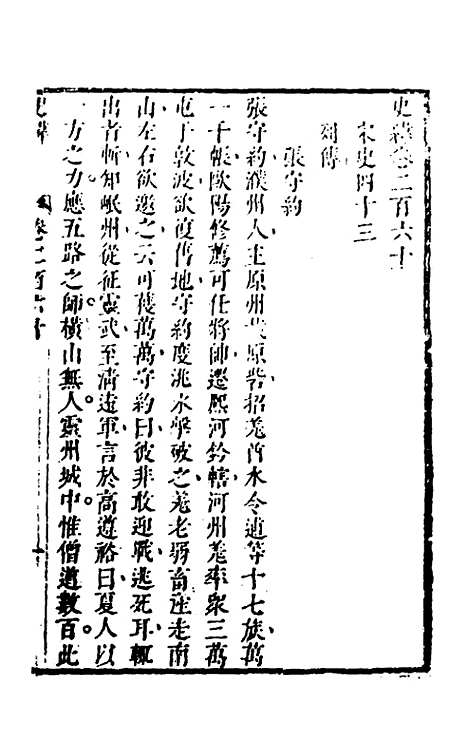 史緯卷二百六十
宋史四十三
列傳
張守約
張守約濮州人主原州截原砦招羌酋水令逋等十七族萬
一千帳歐陽修薦可任將帥遷熙河鈐轄河州羌率眾三萬
屯于敦波欲復舊地守約度洮水擊破之羌老弱畜產走南
山左右欲邀之云可獲萬萬守約曰彼非敢迎戰逃死耳輒
出者斬知岷州從征靈武至清遠軍言於高遵裕曰夏人以
一方之力應五路之師橫山無人靈州城中惟僧道數百此
史緯
卷二百六十